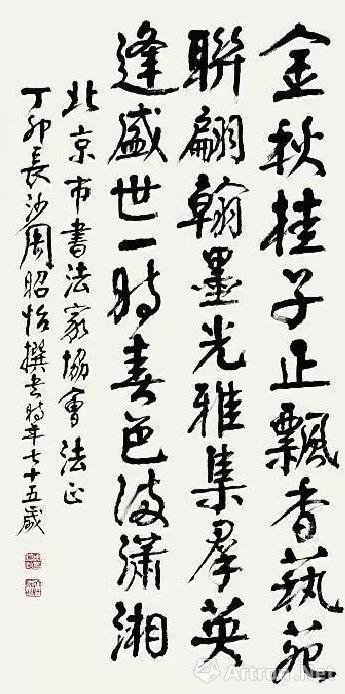 金秋桂子正飄香藝苑
聯翩翰墨光雅集羣英
逢盛世一時春色滿瀟湘
北京市書法家協會法正
丁卯長沙周昭怡撰書時年七十五歲
Artron.Net